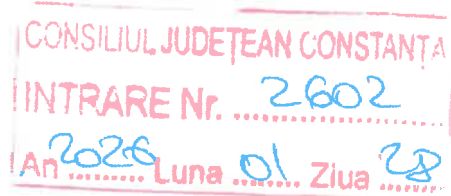 CONSILIUL JUDEȚEAN CONSTANȚA
INTRARE Nr. 2602
An 2026 Luna 01 Ziua 28